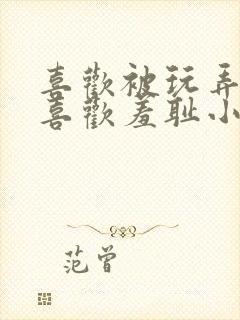 喜歡被玩弄
喜歡羞耻小
范曾